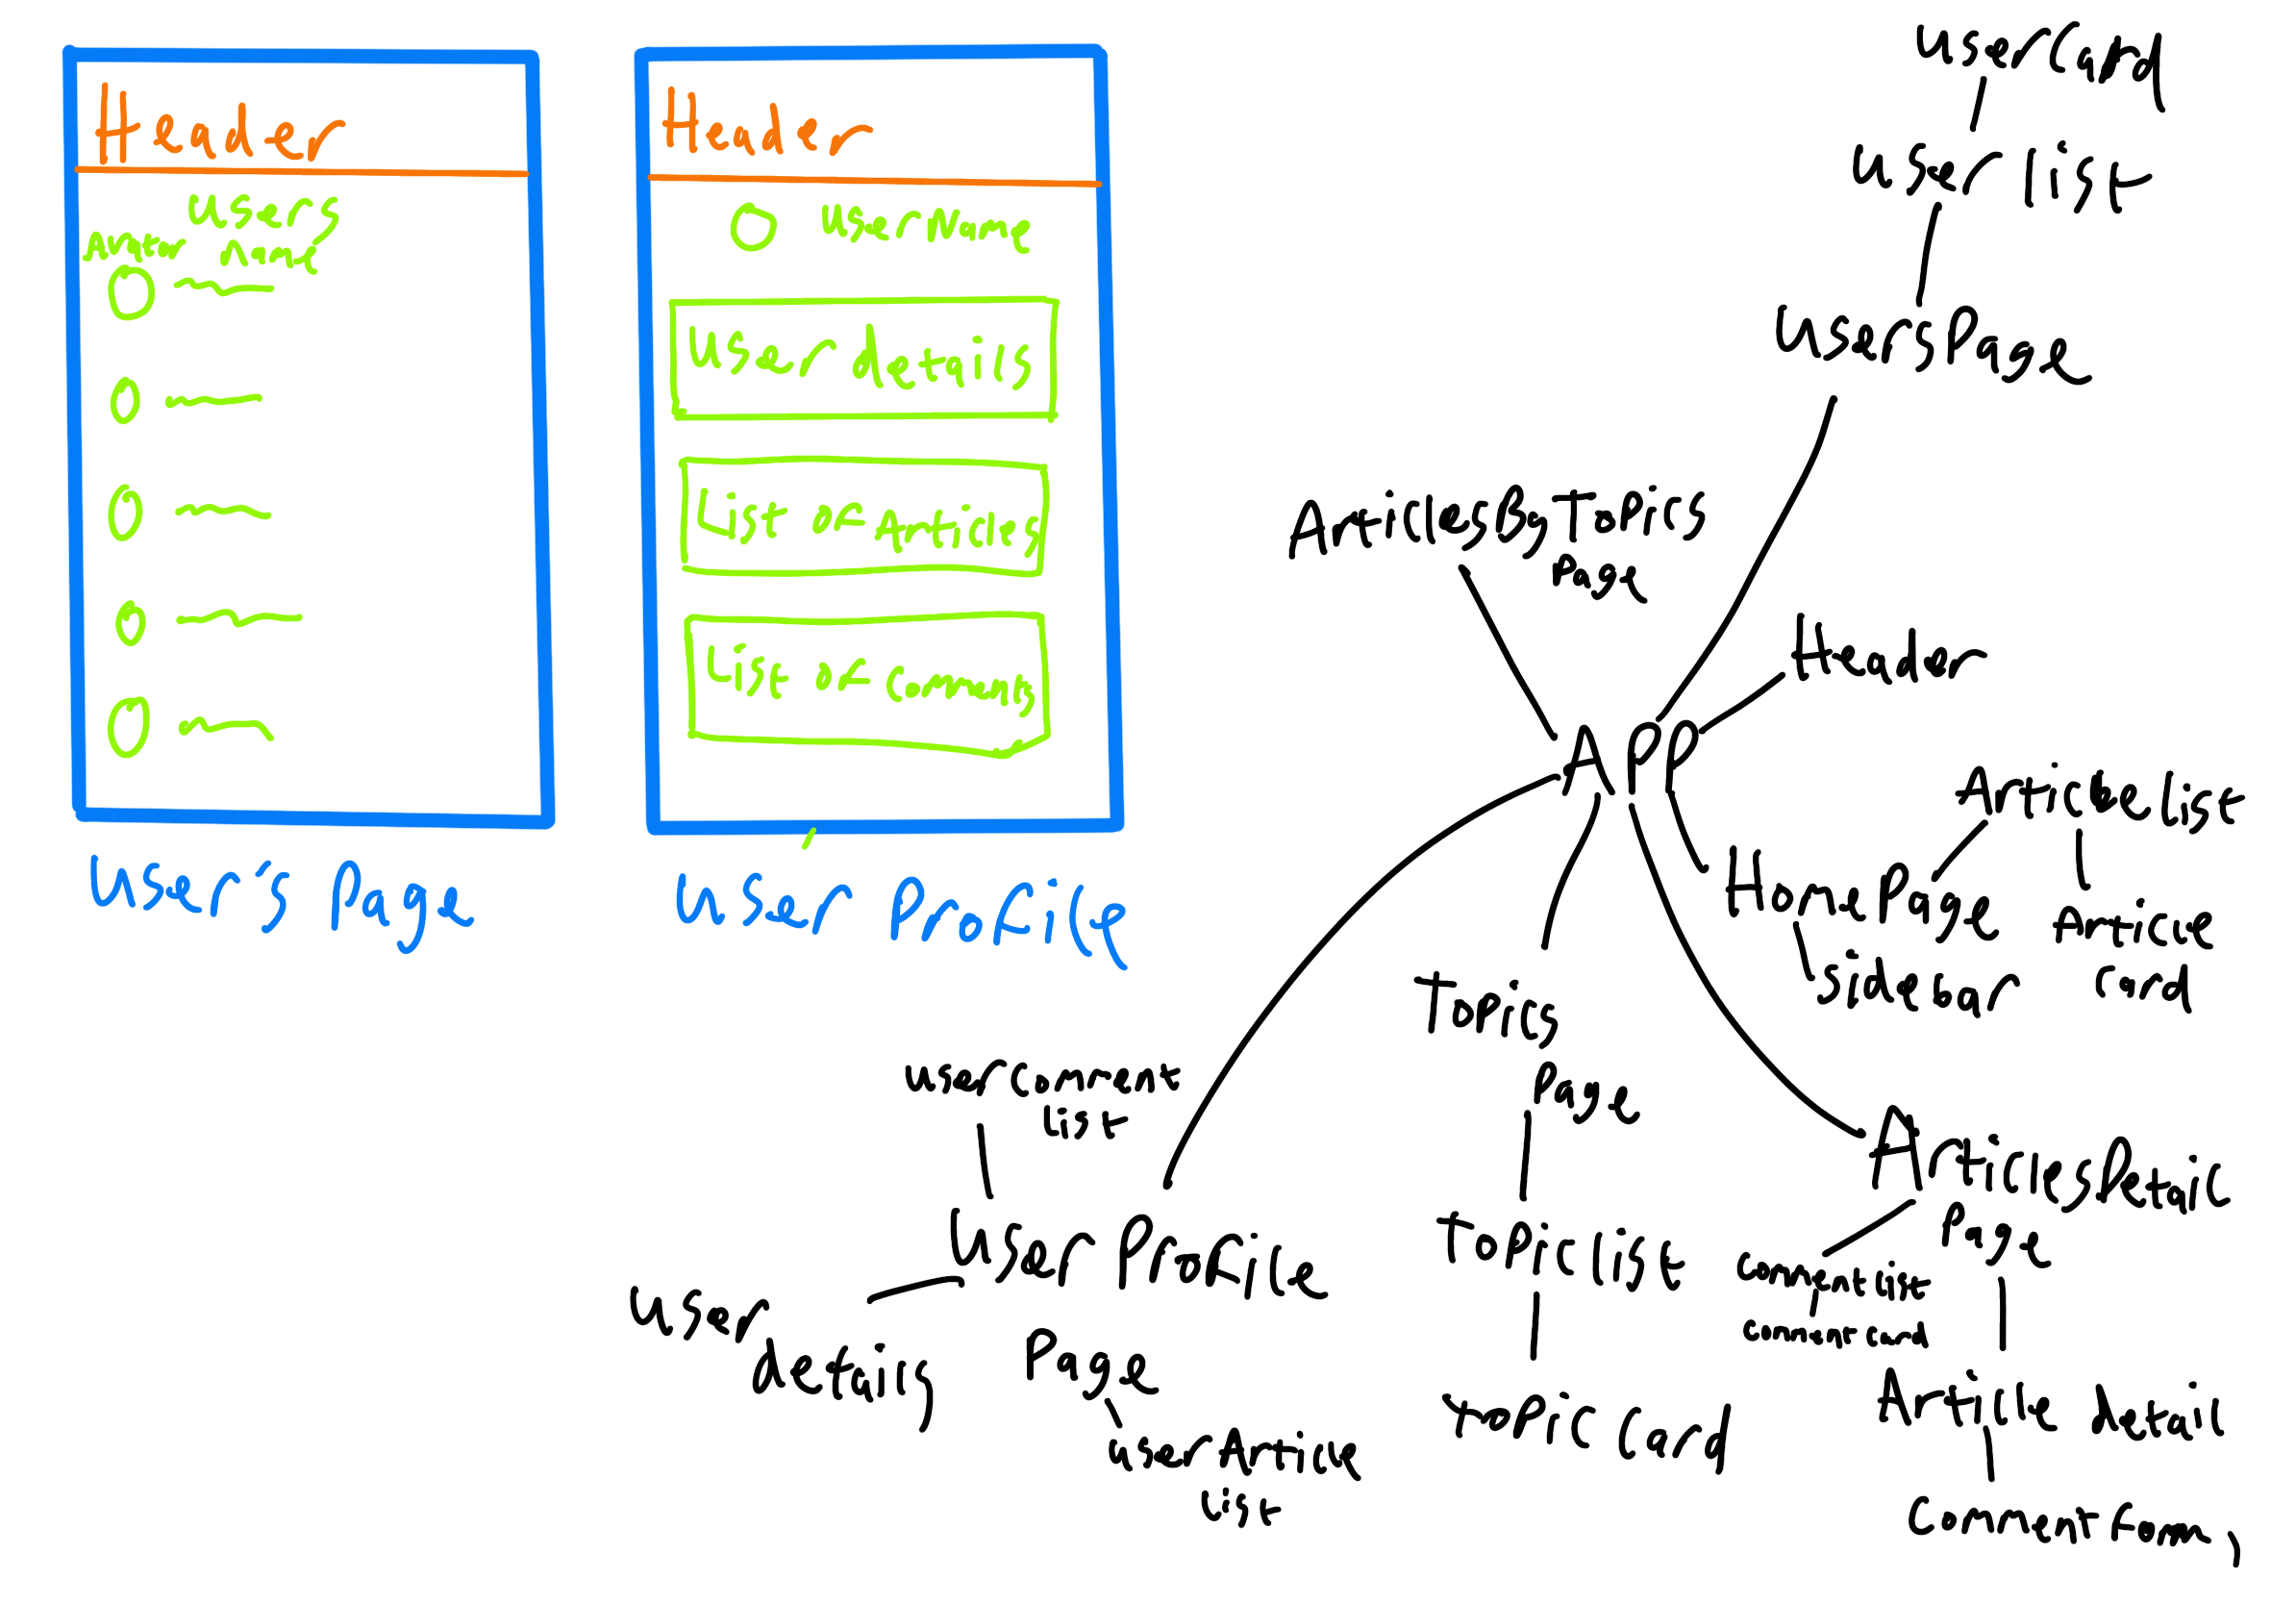 Header
users
Avatar name
User's Page
Header
UserName
User details
List of Articles
List of comments
User Profile
userCard
User list
UsersPage
ArticlesByTopics
Page
Header
APP
Article list
HomePage
Article
card
sidebar
Topics
Page
Topic list
topic Card
ArticlesDetail
Page
comment list
comment card
Article detail
Comment form,
userComment
list
User Profile
Page
User
details
userArticle
list